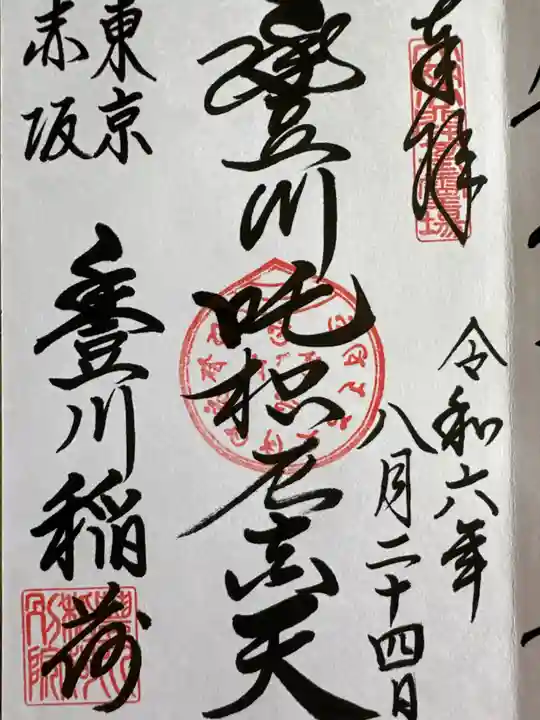 奉拝
令和六年
八月二十四日
豊川吒枳尼真天
東京
赤坂
豊川稲荷